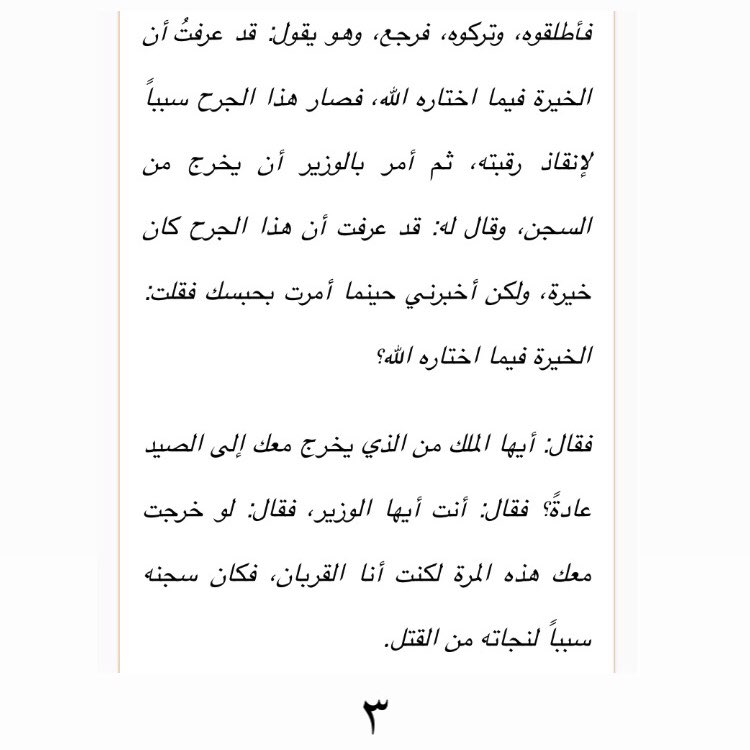 فأطلقوه، وتركوه، فرجع، وهو يقول: قد عرفتُ أن
الخيرة فيما اختاره الله، فصار هذا الجرح سبباً
لإنقاذ رقبته، ثم أمر بالوزير أن يخرج من
السجن، وقال له: قد عرفت أن هذا الجرح كان
خيرة، ولكن أخبرني حينما أمرت بحبسك فقلت:
الخيرة فيما اختاره الله؟
فقال: أيها الملك من الذي يخرج معك إلى الصيد
عادةً؟ فقال: أنت أيها الوزير، فقال: لو خرجت
معك هذه المرة لكنت أنا القربان، فكان سجنه
سبباً لنجاته من القتل.
٣